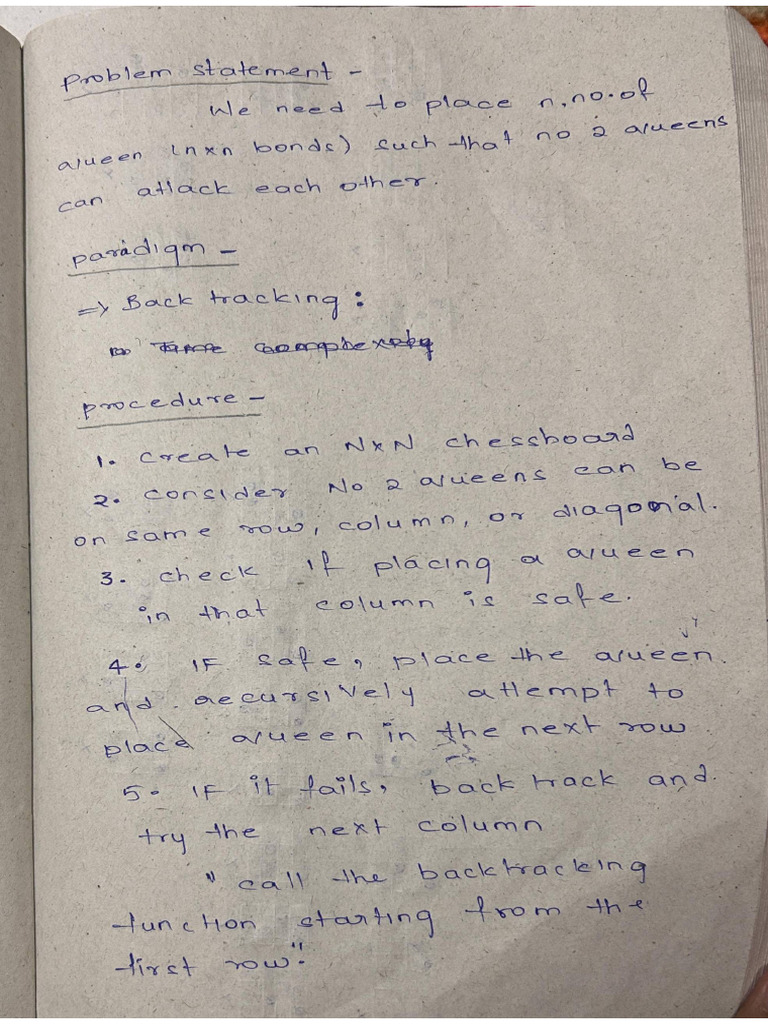 Problem statement -
We need to place n.no.of
queen (nxn bonds) such that no 2 queens
can attack each other.
paradigm -
⇒ Back tracking :
Time complexity
procedure -
1. create an NxN chessboard
2. consider No 2 queens can be
on same row, column, or diagonal.
3. check if placing a queen
in that column is safe.
4. IF safe, place the queen
and recursively attempt to
place queen in the next row.
5. IF it fails, back track and
try the next column
" call the backtracking
function starting from the
first row".